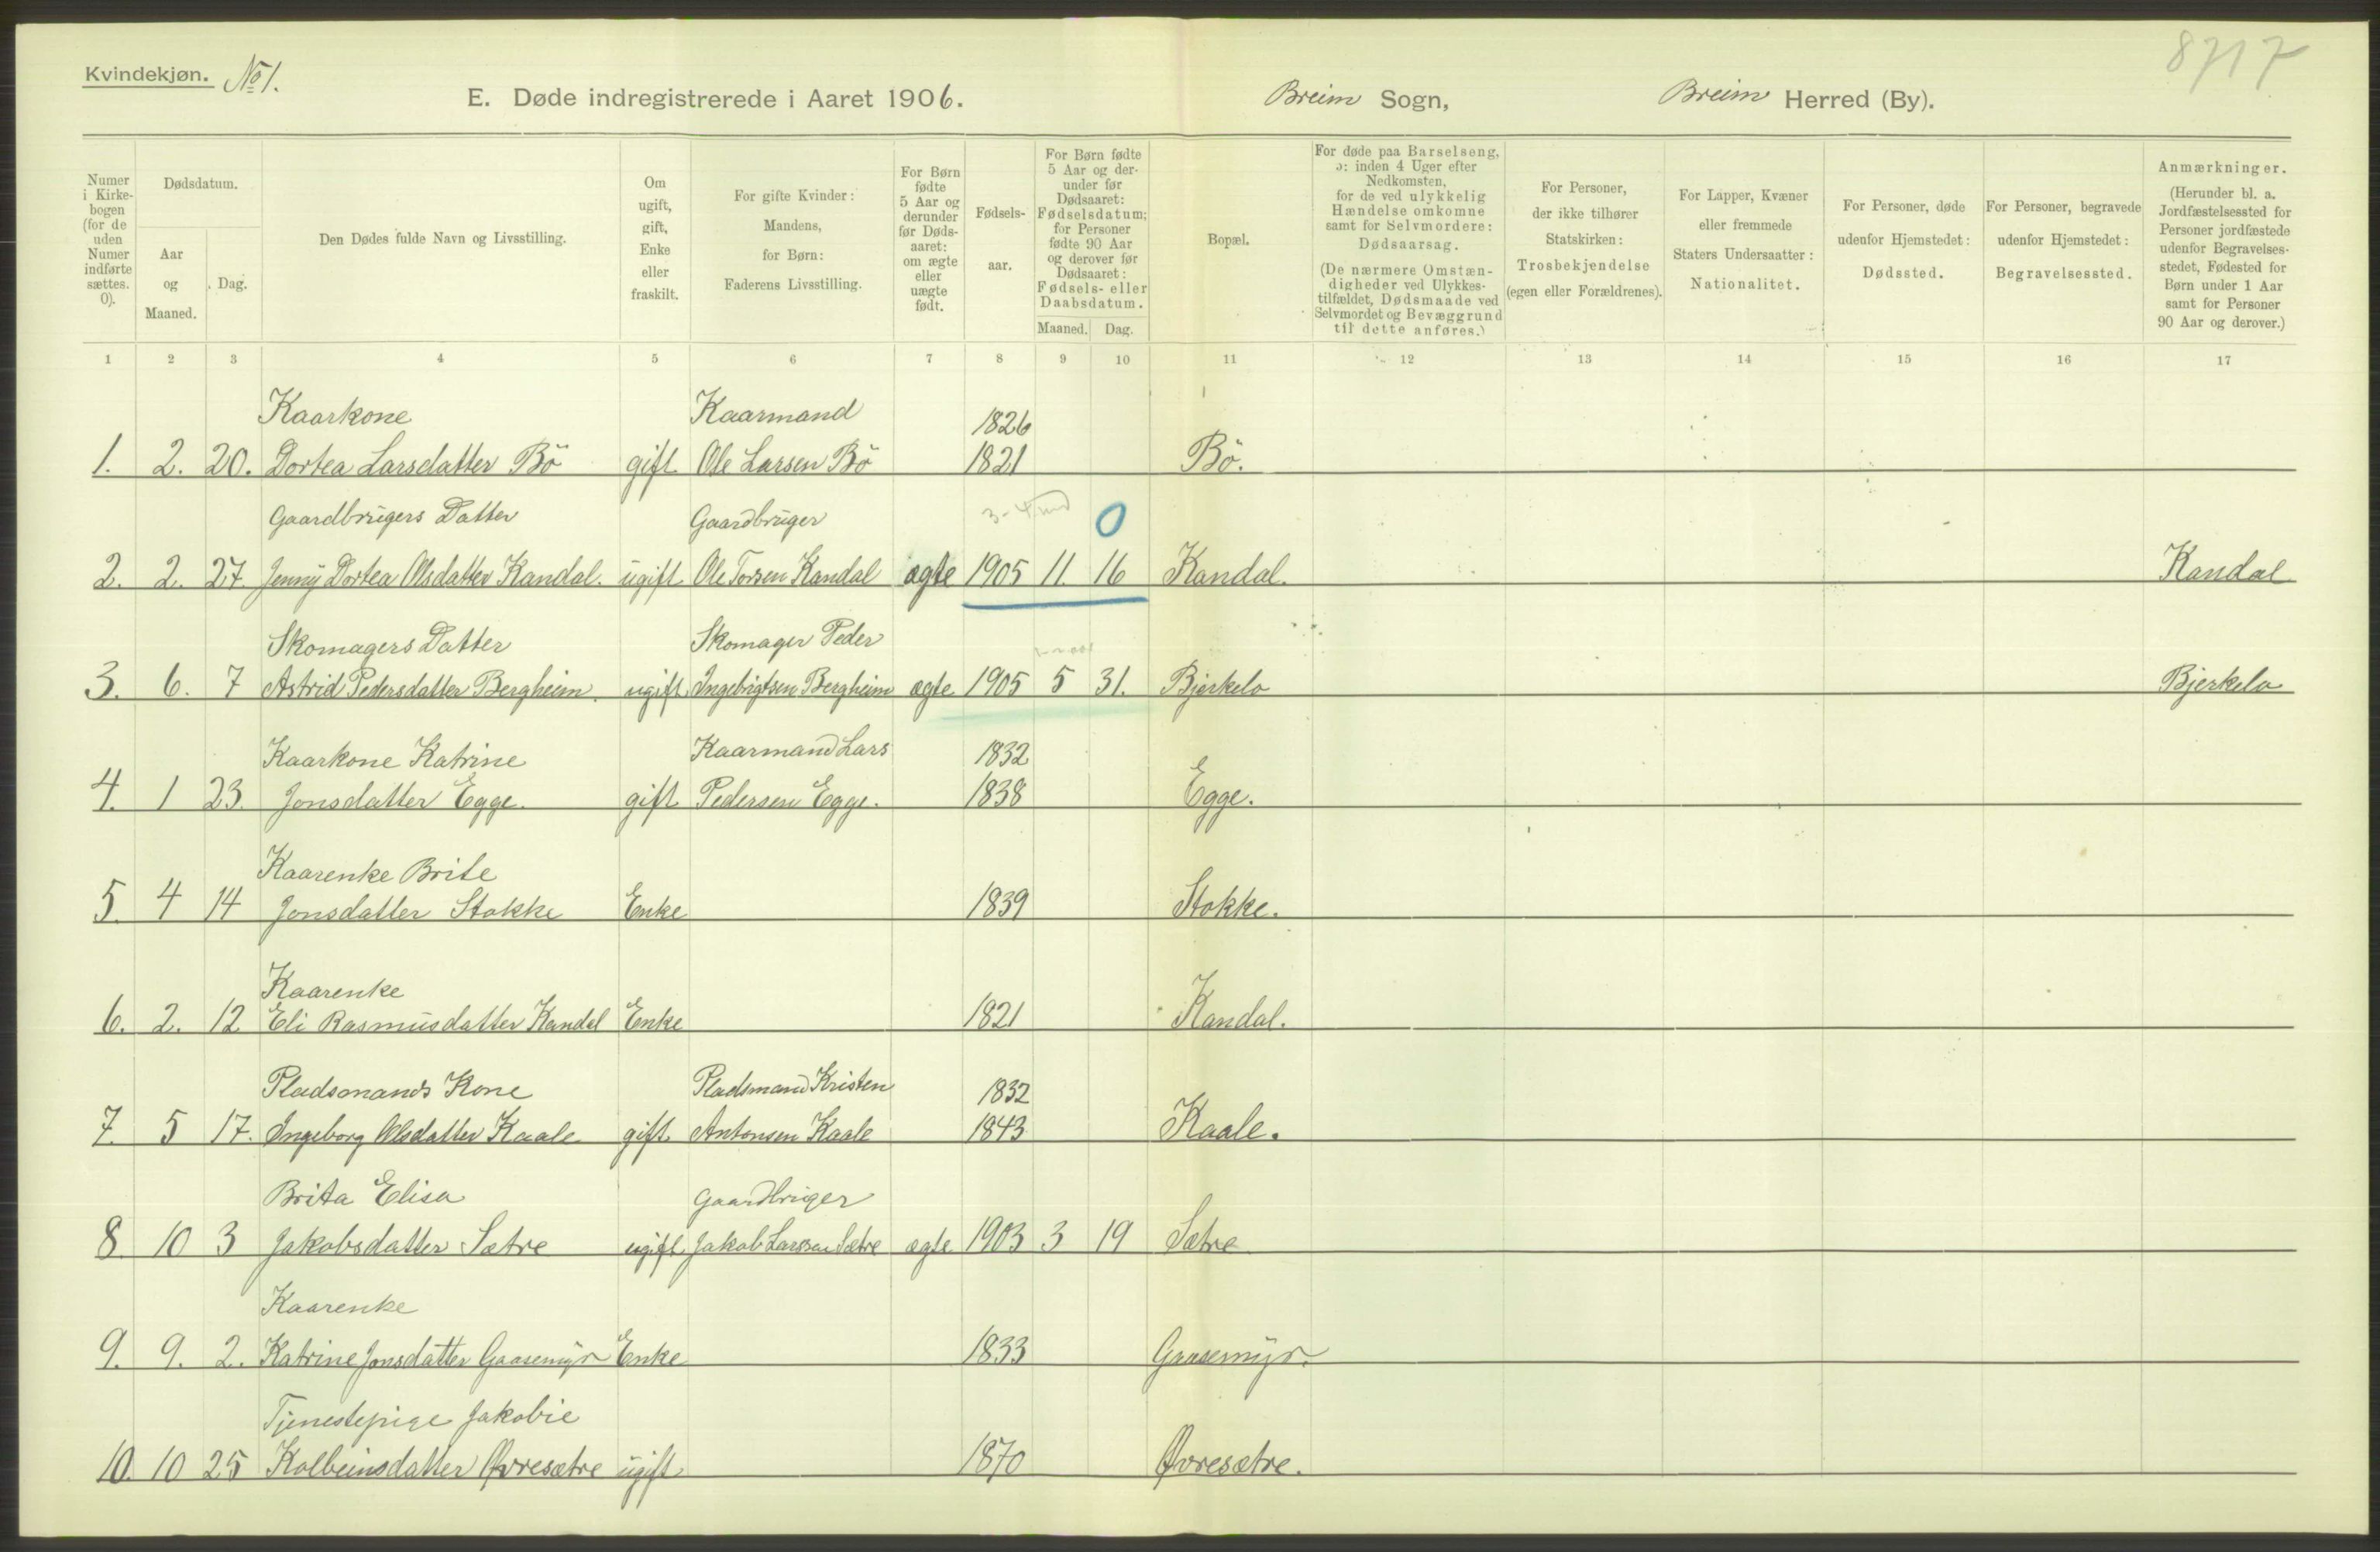 8717
Kvindekjøn. No 1.
E. Døde indregistrerede i Aaret 1906. Breim Sogn, Breim Herred (By).
Numer i Kirke-bogen (for de uden Numer indførte sættes. 0).
Dødsdatum.
Aar og Maaned.
Dag.
Den Dødes fulde Navn og Livsstilling.
Om ugift, gift, Enke eller fraskilt.
For gifte Kvinder: Mandens, for Børn: Faderens Livsstilling.
For Børn fødte 5 Aar og derunder før Døds-aaret: om ægte eller uægte født.
Fødsels-aar.
For Børn fødte 5 Aar og der-under før Dødsaaret: Fødselsdatum; for Personer fødte 90 Aar og derover før Dødsaaret: Fødsels- eller Daabsdatum.
Maaned. Dag.
Bopæl.
For døde paa Barselseng, ɔ: inden 4 Uger efter Nedkomsten, for de ved ulykkelig Hændelse omkomne samt for Selvmordere: Dødsaarsag.
(De nærmere Omstæn-digheder ved Ulykkes-tilfældet, Dødsmaade ved Selvmordet og Bevæggrund til dette anføres.)
For Personer, der ikke tilhører Statskirken: Trosbekjendelse (egen eller Forældrenes).
For Lapper, Kvæner eller fremmede Staters Undersaatter: Nationalitet.
For Personer, døde udenfor Hjemstedet: Dødssted.
For Personer, begravede udenfor Hjemstedet: Begravelsessted.
Anmærkninger.
(Herunder bl. a. Jordfæstelsessted for Personer jordfæstede udenfor Begravelses-stedet, Fødested for Børn under 1 Aar samt for Personer 90 Aar og derover.)
1 2 3 4 5 6 7 8 9 10 11 12 13 14 15 16 17
Kaarkone Kaarmand 1826
1. 2. 20. Dortea Larsdatter Bö gift Ole Larsen Bö 1821 Bö.
Gaardbrugers Datter Gaardbruger 0
2. 2. 27. Jenny Dortea Olsdatter Kandal. ugift Ole Torsen Kandal ægte 1905 11. 16 Kandal. Kandal
Skomagers Datter Skomager Peder
3. 6. 7 Astrid Pedersdatter Bergheim. ugift Ingebrigtsen Bergheim ægte 1905 5 31. Bjerkelo Bjerkelo
Kaarkone Katrine Kaarmand Lars 1832
4. 1 23. Jonsdatter Egge. gift Pedersen Egge. 1838 Egge.
Kaarenke Brite
5. 4 14 Jonsdatter Stokke Enke 1839 Stokke.
Kaarenke
6. 2. 12 Eli Rasmusdatter Kandal Enke 1821 Kandal.
Pladsmands Kone Pladsmand Kristen 1832
7. 5 17. Ingeborg Olsdatter Kaale gift Antonsen Kaale 1843 Kaale.
Brita Elisa Gaardbruger
8. 10 3 Jakobsdatter Sætre ugift Jakob Larssen Sætre ægte 1903 3 19 Sætre
Kaarenke
9. 9. 2. Katrine Jonsdatter Gaasemyr Enke 1833 Gaasemyr.
Tjenestepige Jakobie
10. 10 25 Kolbeinsdatter Øvresætre ugift 1870 Øvresætre.